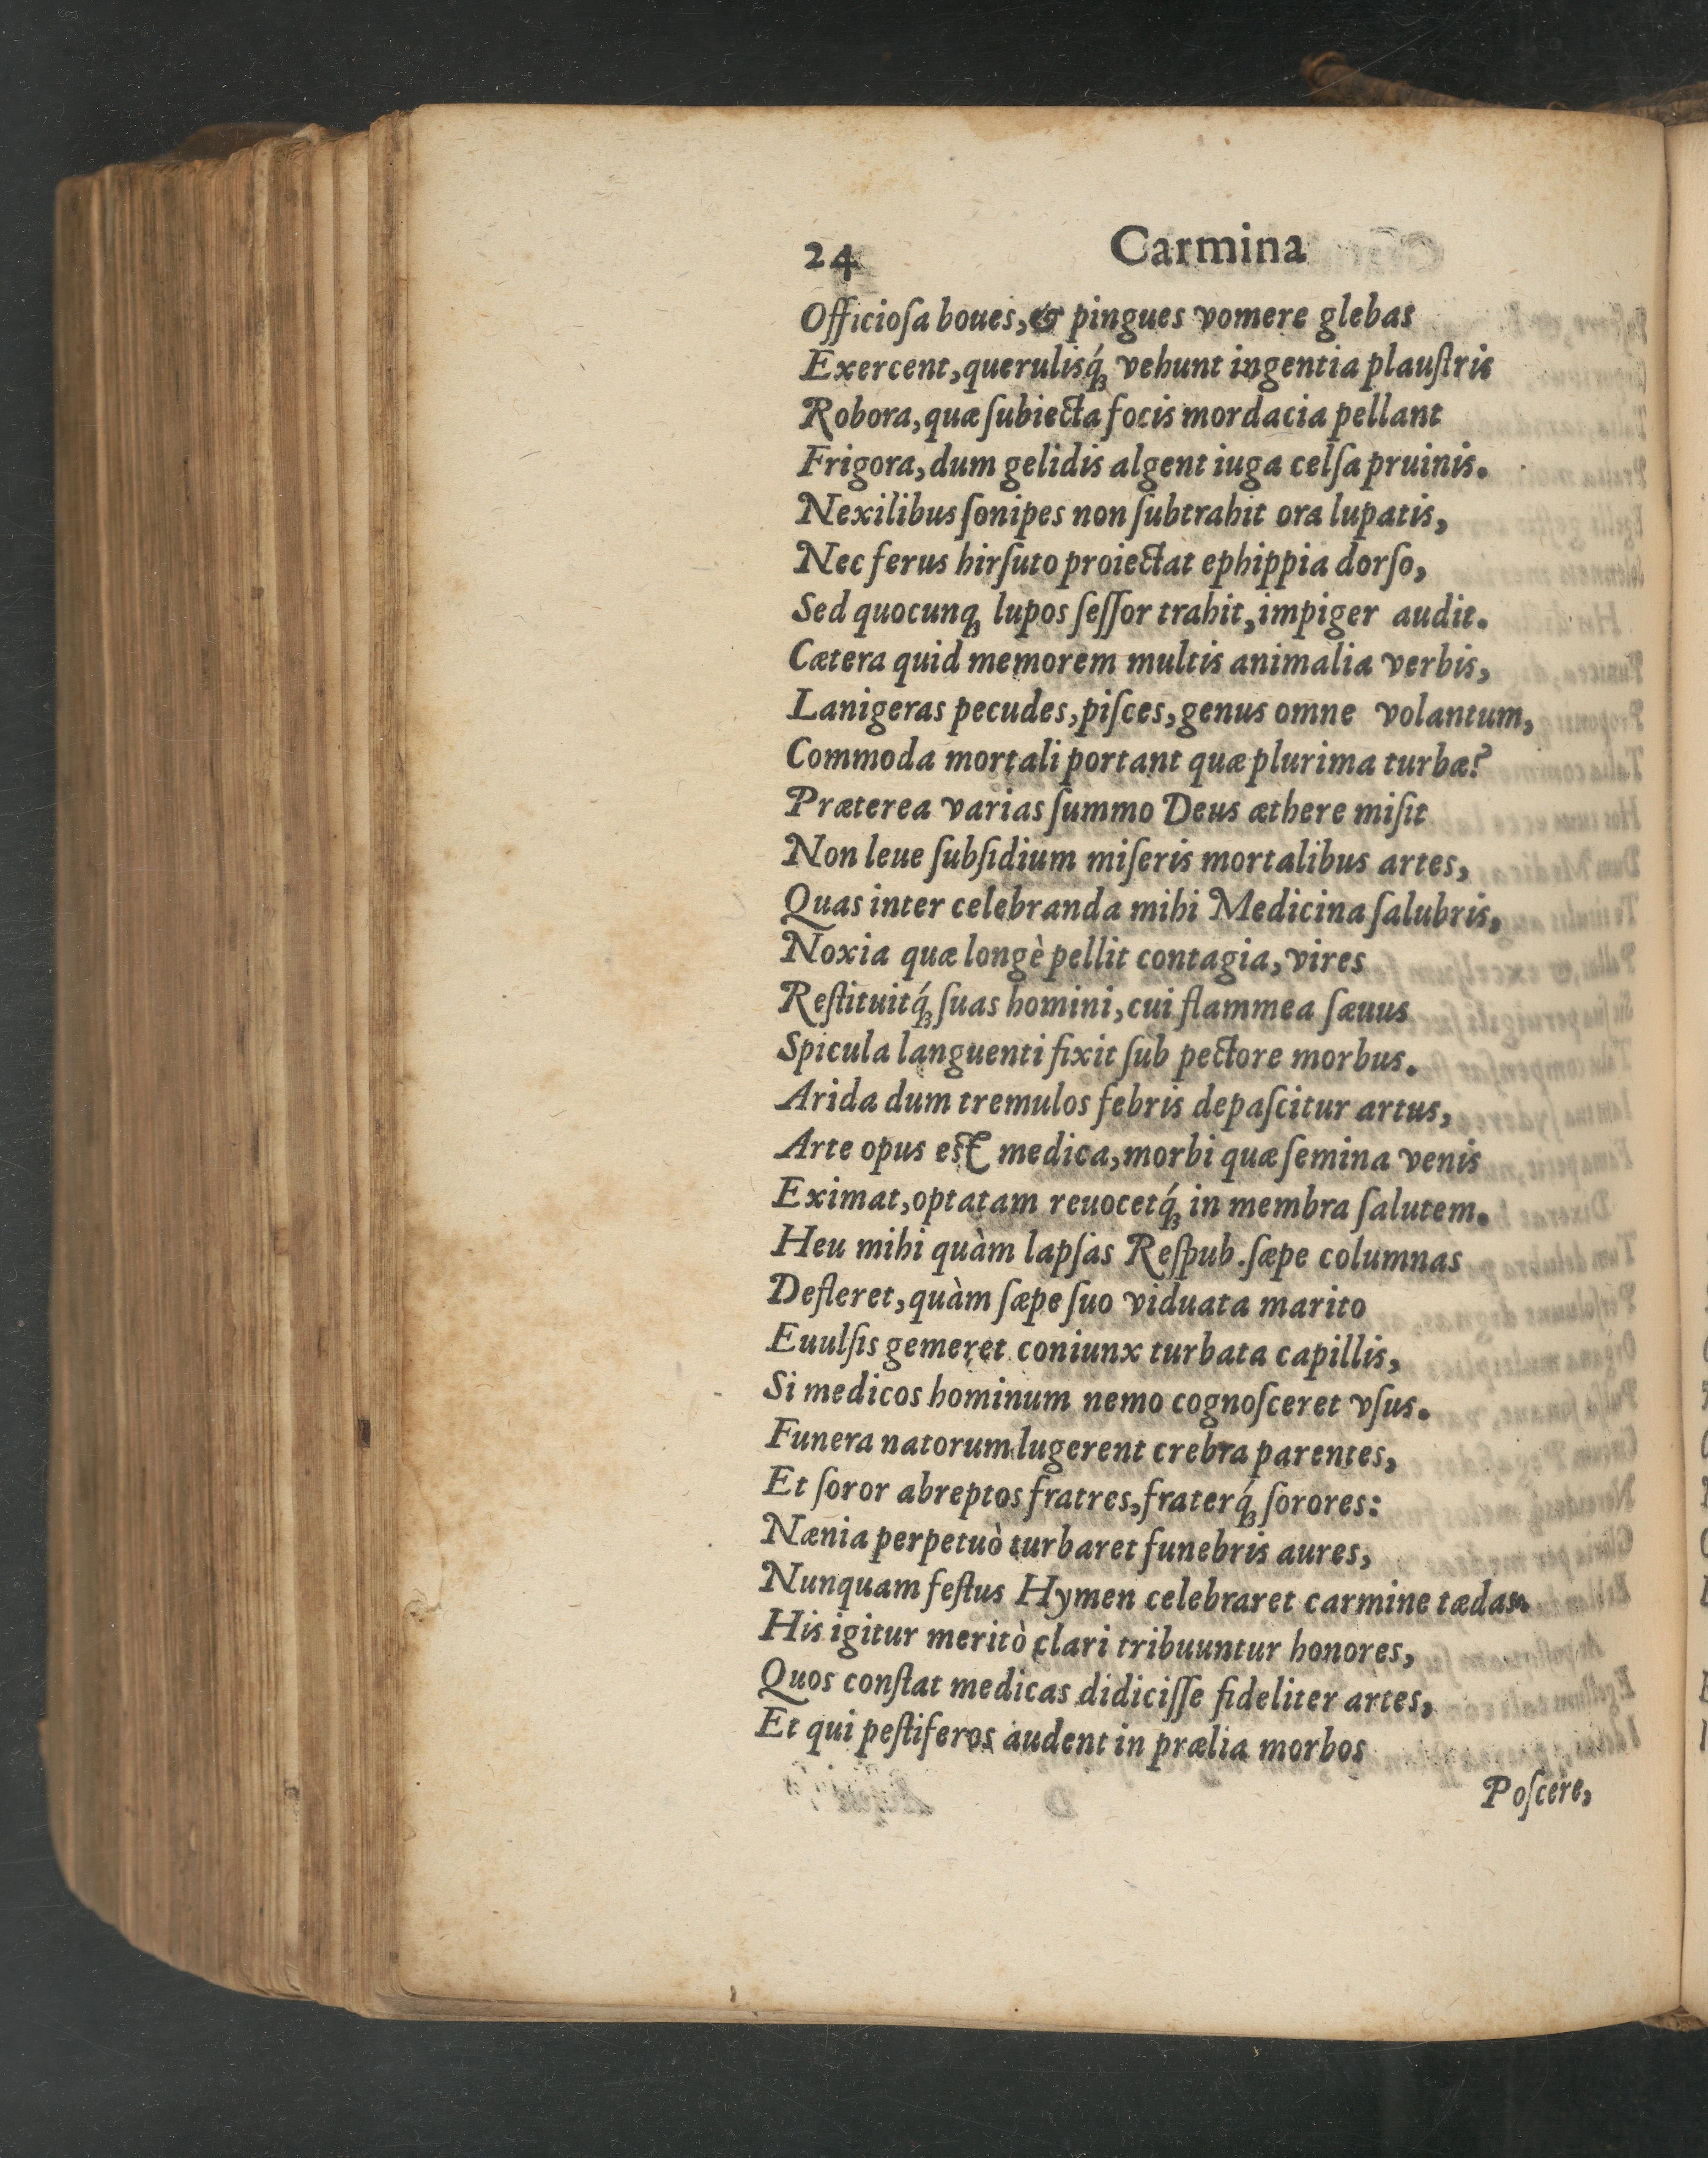 24 Carmina
Officioſa boues, & pingues vomere glebas
Exercent, querulisq́ꝫ vehunt ingentia plauſtris
Robora, quæ ſubiecta focis mordacia pellant
Frigora, dum gelidis algent iuga celſa pruinis.
Nexilibus ſonipes non ſubtrahit ora lupatis,
Nec ferus hirſuto proiectat ephippia dorſo,
Sed quocunqꝫ lupos ſeſſor trahit, impiger audit.
Cætera quid memorem multis animalia verbis,
Lanigeras pecudes, piſces, genus omne volantum,
Commoda mortali portant quæ plurima turbæ?
Præterea varias ſummo Deus æthere miſit
Non leue ſubſidium miſeris mortalibus artes,
Quas inter celebranda mihi Medicina ſalubris,
Noxia quæ longè pellit contagia, vires
Reſtituitq́ꝫ ſuas homini, cui flammea ſæuus
Spicula languenti fixit ſub pectore morbus.
Arida dum tremulos febris depaſcitur artus,
Arte opus eſt medica, morbi quæ ſemina venis
Eximat, optatam reuocetq́ꝫ in membra ſalutem.
Heu mihi quàm lapſas Reſpub. ſæpe columnas
Defleret, quàm ſæpe ſuo viduata marito
Euulſis gemeret coniunx turbata capillis,
Si medicos hominum nemo cognoſceret vſus.
Funera natorum lugerent crebra parentes,
Et ſoror abreptos fratres, fraterq́ꝫ ſorores:
Nænia perpetuò turbaret funebris aures,
Nunquam feſtus Hymen celebraret carmine tædas.
His igitur meritò clari tribuuntur honores,
Quos conſtat medicas didiciſſe fideliter artes,
Et qui peſtiferos audent in prælia morbos
Poſcere,